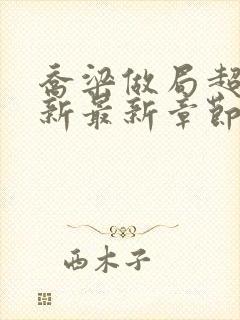 乔梁做局超
新最新章节
西木子